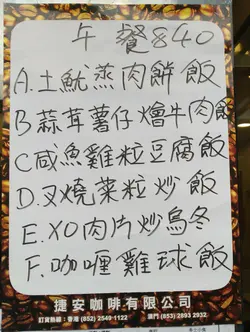 午餐$40
A.土魷蒸肉餅飯
B蒜茸薯仔燴牛肉飯
C咸魚雞粒豆腐飯
D.叉燒菜粒炒飯
E.XO肉片炒烏冬
F.咖喱雞球飯
捷安咖啡有限公司
訂貨熱線：香港 (852) 2549 1122 澳門 (853) 2893 2932